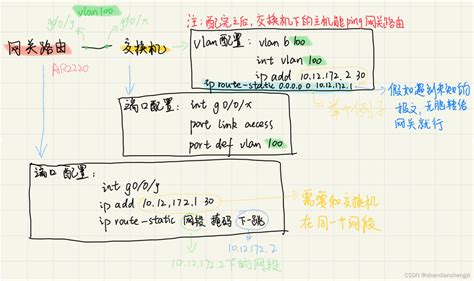 vlan100
注:配完之后,交换机下的主机能ping网关路由
g0/0/y
g0/0/x
网关路由
交换机
AR2220
vlan配置: vlan b 100
int vlan 100
ip add 10.12.172.2 30
ip route-static 0.0.0.0 0 10.12.172.1
举个例子
假如遇到未知的
报文,无脑转给
网关就行
端口配置: int g0/0/x
port link access
port def vlan 100
端口配置:
int g0/0/y
ip add 10.12.172.1 30
ip route-static 网段 掩码 下一跳
需要和交换机
在同一个网段
10.12.172.2
10.12.172.2下的网段
CSDN @shandianchengzi